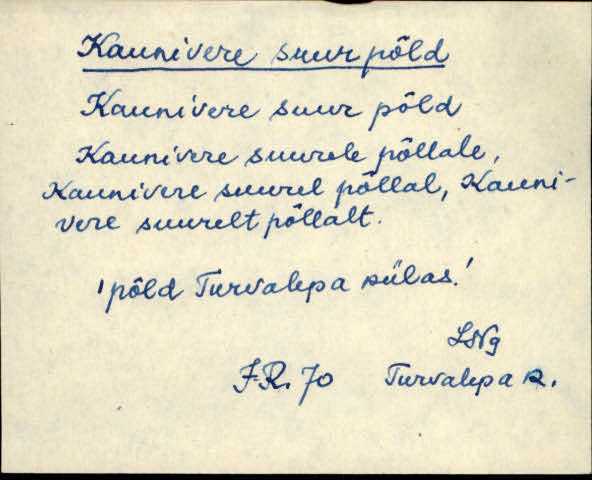 Kaunivere suur põld
Kaunivere suur põld
Kaunivere suurele põllale,
Kaunivere suurel põllal, Kauni-
vere suurelt põllalt.
'põld Turvalepa külas.'
LNg
F.R. 70 Turvalepa k.